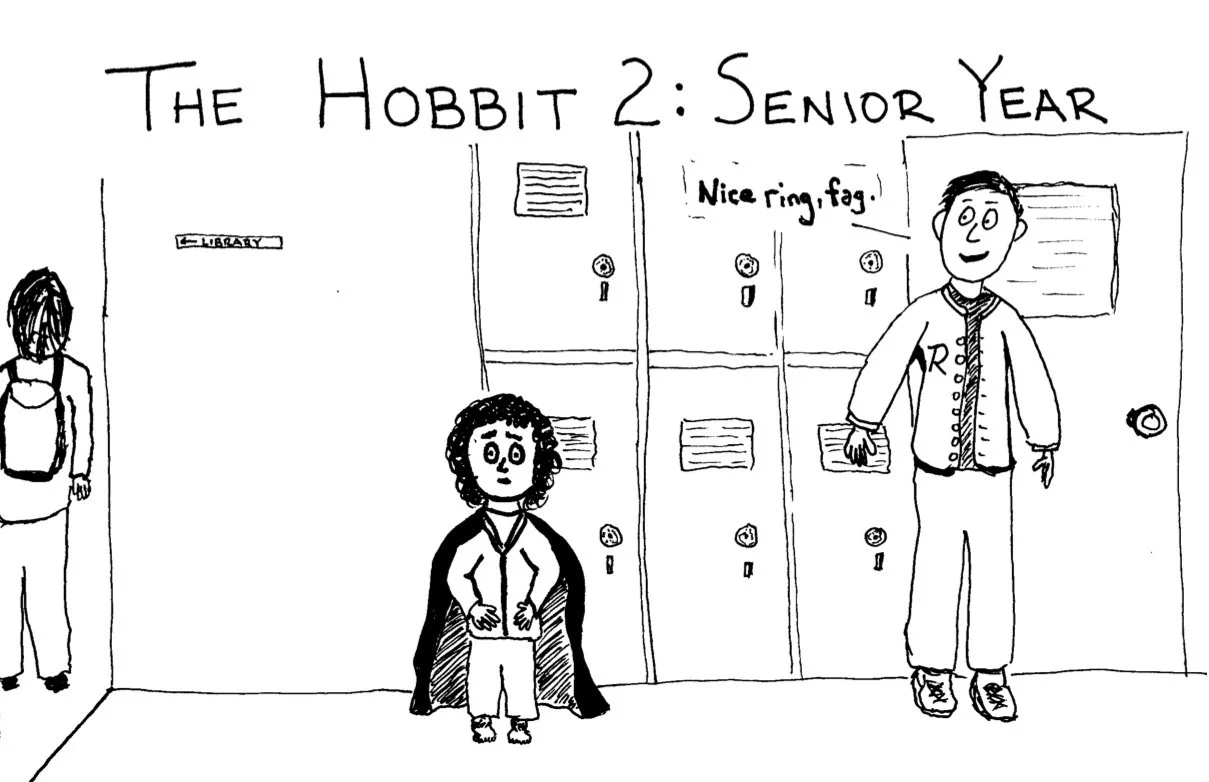 THE HOBBIT 2: SENIOR YEAR
Nice ring, fag.
← LIBRARY
R